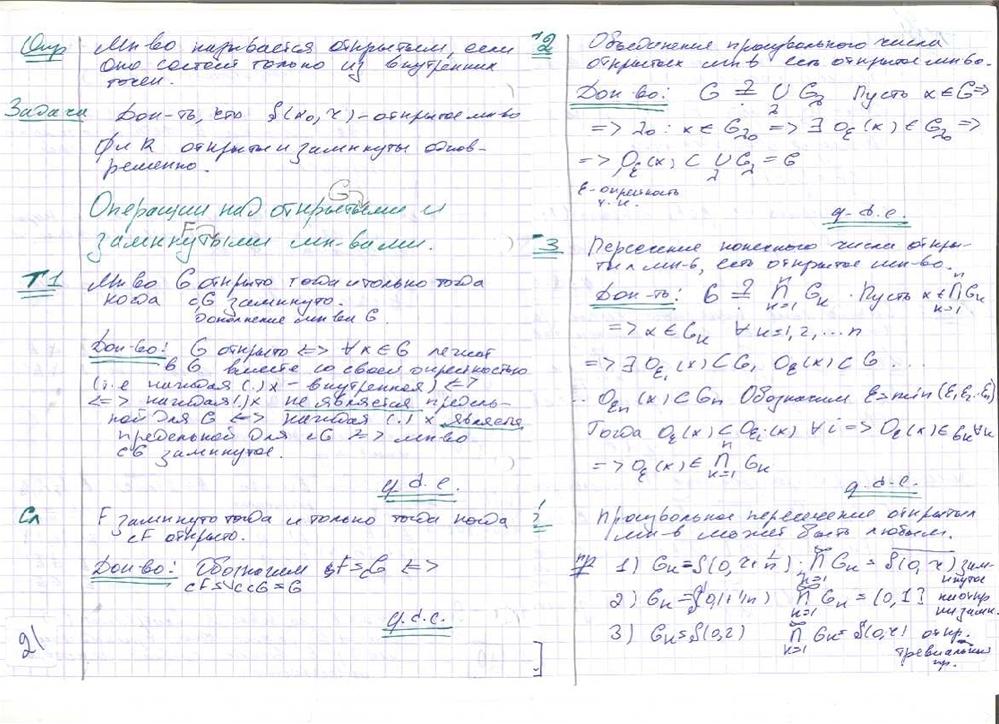 Опр Мн-во называется открытым, если
оно состоит только из внутренних
точек.
Задача Док-ть, что S(x₀, r) - открытое мн-во
Ø и R открыты и замкнуты однов-
ременно.
G
Операции над открытыми и
F
замкнутыми мн-вами.
Т1 Мн-во G открыто тогда и только тогда
когда cG замкнуто.
дополнение мн-ва G.
Док-во: G открыто <=> ∀x∈G лежит
в G вместе со своей окрестностью
(т.е каждая (.) x - внутренняя) <=>
<=> каждая (.) x не является предель-
ной для G <=> каждая (.) x является
предельной для cG <=> мн-во
cG замкнутое.
q.d.e.
Сл F замкнуто тогда и только тогда когда
cF открыто.
Док-во: Обозначим F=cG <=>
cF=ccG=G
q.d.e.
21
Т2 Объединение произвольного числа
открытых мн-в есть открытое мн-во.
Док-во: G = ∪ G₂ Пусть x∈G =>
=> 2₀: x∈G₂₀ => ∃ Oε(x) ∈ G₂₀ =>
=> Oε(x) ⊂ ∪ G₂ = G
ε-окрестность
т. x.
q.d.e.
Т3 Пересечение конечного числа откры-
тых мн-в, есть открытое мн-во.
Док-ть: G = ⋂ₖ₌₁ⁿ Gₖ. Пусть x∈⋂ₖ₌₁ⁿ Gₖ
=> x∈Gₖ ∀k=1,2,...n
=> ∃ Oε₁(x)⊂G₁, Oε(x)⊂G ...
.. Oεn(x)⊂Gn Обозначим ε=min(ε₁,ε₂..εn)
Тогда Oε(x)⊂Oεi(x) ∀i => Oε(x)∈Gₖ∀k
=> Oε(x) ∈ ⋂ₖ₌₁ⁿ Gₖ
q.d.e.
! Произвольное пересечение открытых
мн-в может быть любым.
пр 1) Gₖ=S(0,r+1/n). ⋂ₖ₌₁^∞ Gₖ = S(0,r) зам-
кнутое
2) Gₖ=(0,1+1/n) ⋂ₖ₌₁^∞ Gₖ = (0,1] ни откр
ни замк.
3) Gₖ=S(0,r) ⋂ₖ₌₁^∞ Gₖ=S(0,r) откр.
тревиальный
пр.